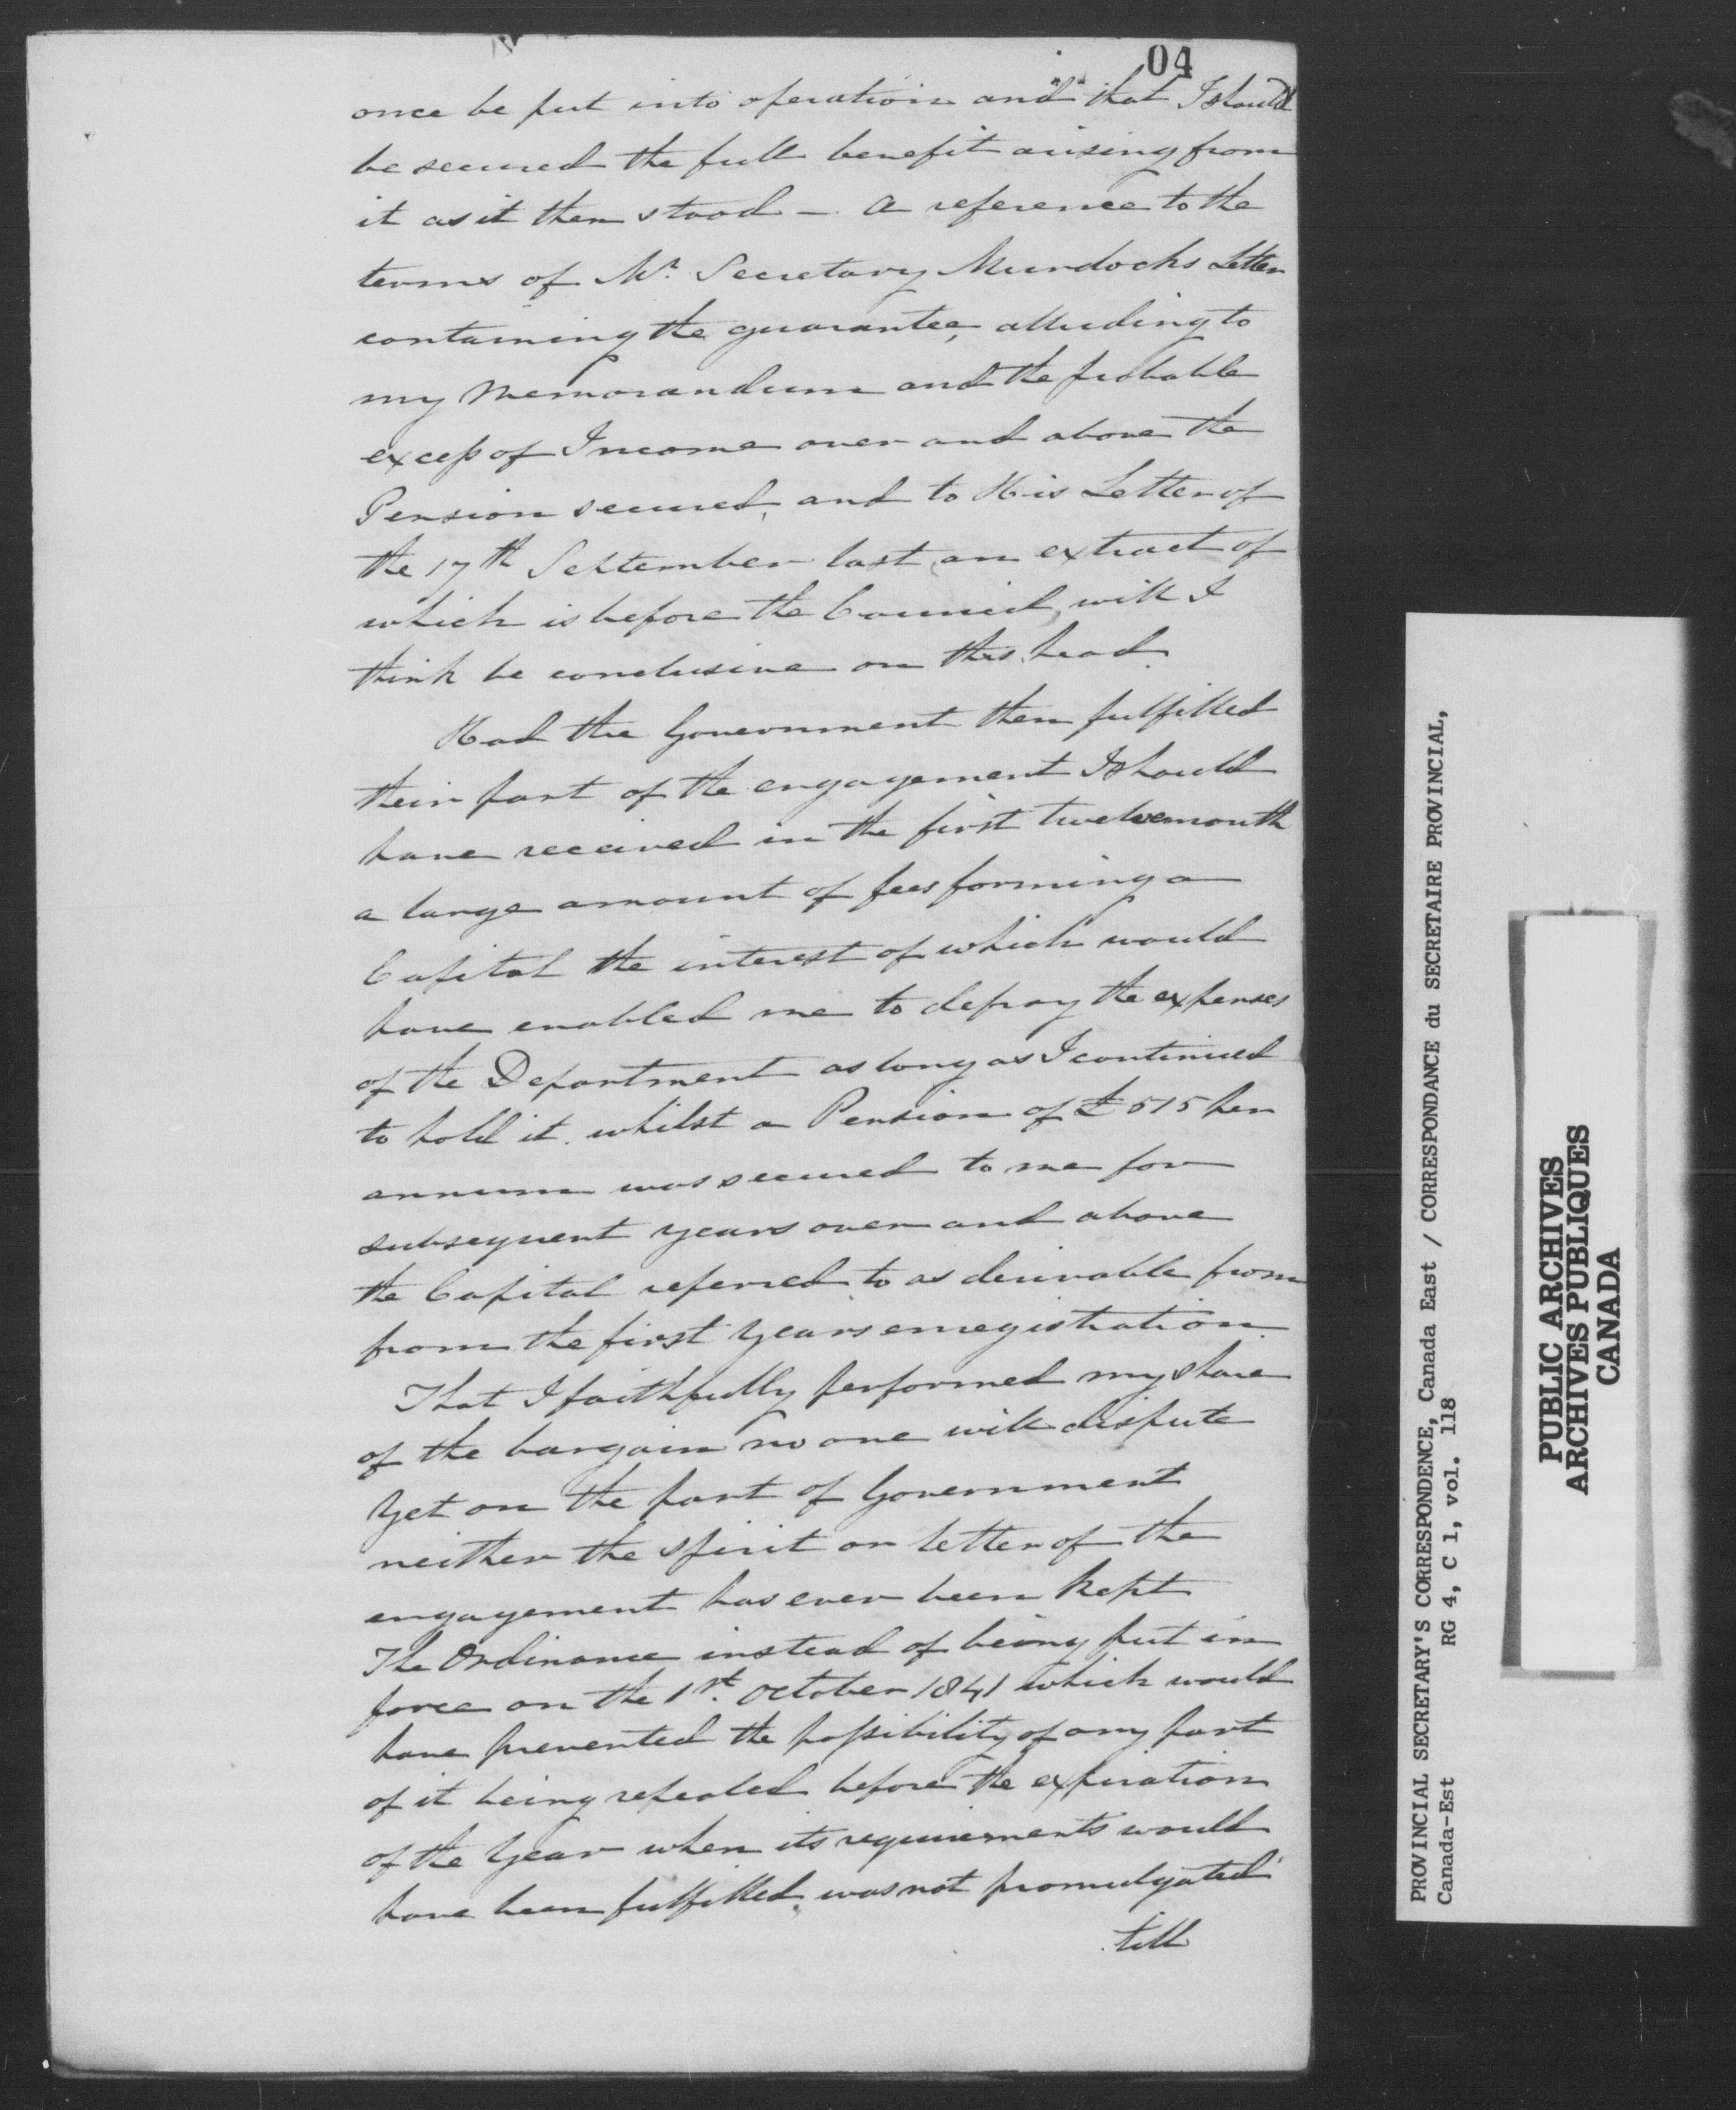 04
once be put into operation and that I should
be secured the full benefit arising from
it as it then stood — a reference to the
terms of Mr. Secretary Murdochs Letter
containing the guarantee, alluding to
my Memorandum and the probable
excess of Income over and above the
Pension secured, and to His Letter of
the 17th September last, an extract of
which is before the Council, will I
think be conclusive on this head.
Had the Government then fulfilled
their part of the engagement I should
have received in the first twelvemonth
a large amount of fees forming a
Capital the interest of which would
have enabled me to defray the expenses
of the Department as long as I continued
to hold it. whilst a Pension of £515 per
annum was secured to me for
subsequent years over and above
the Capital referred to as derivable from
from the first Years enregistration.
That I faithfully performed my share
of the bargain no one will dispute
Yet on the part of Government
neither the spirit or letter of the
engagement has ever been kept
The Ordinance instead of being put in
force on the 1st. October 1841 which would
have prevented the possibility of any part
of it being repealed before the expiration
of the Year when its requirements would
have been fulfilled, was not promulgated
till
PROVINCIAL SECRETARY'S CORRESPONDENCE, Canada East / CORRESPONDANCE du SECRETAIRE PROVINCIAL,
Canada-Est RG 4, C 1, vol. 118
PUBLIC ARCHIVES
ARCHIVES PUBLIQUES
CANADA